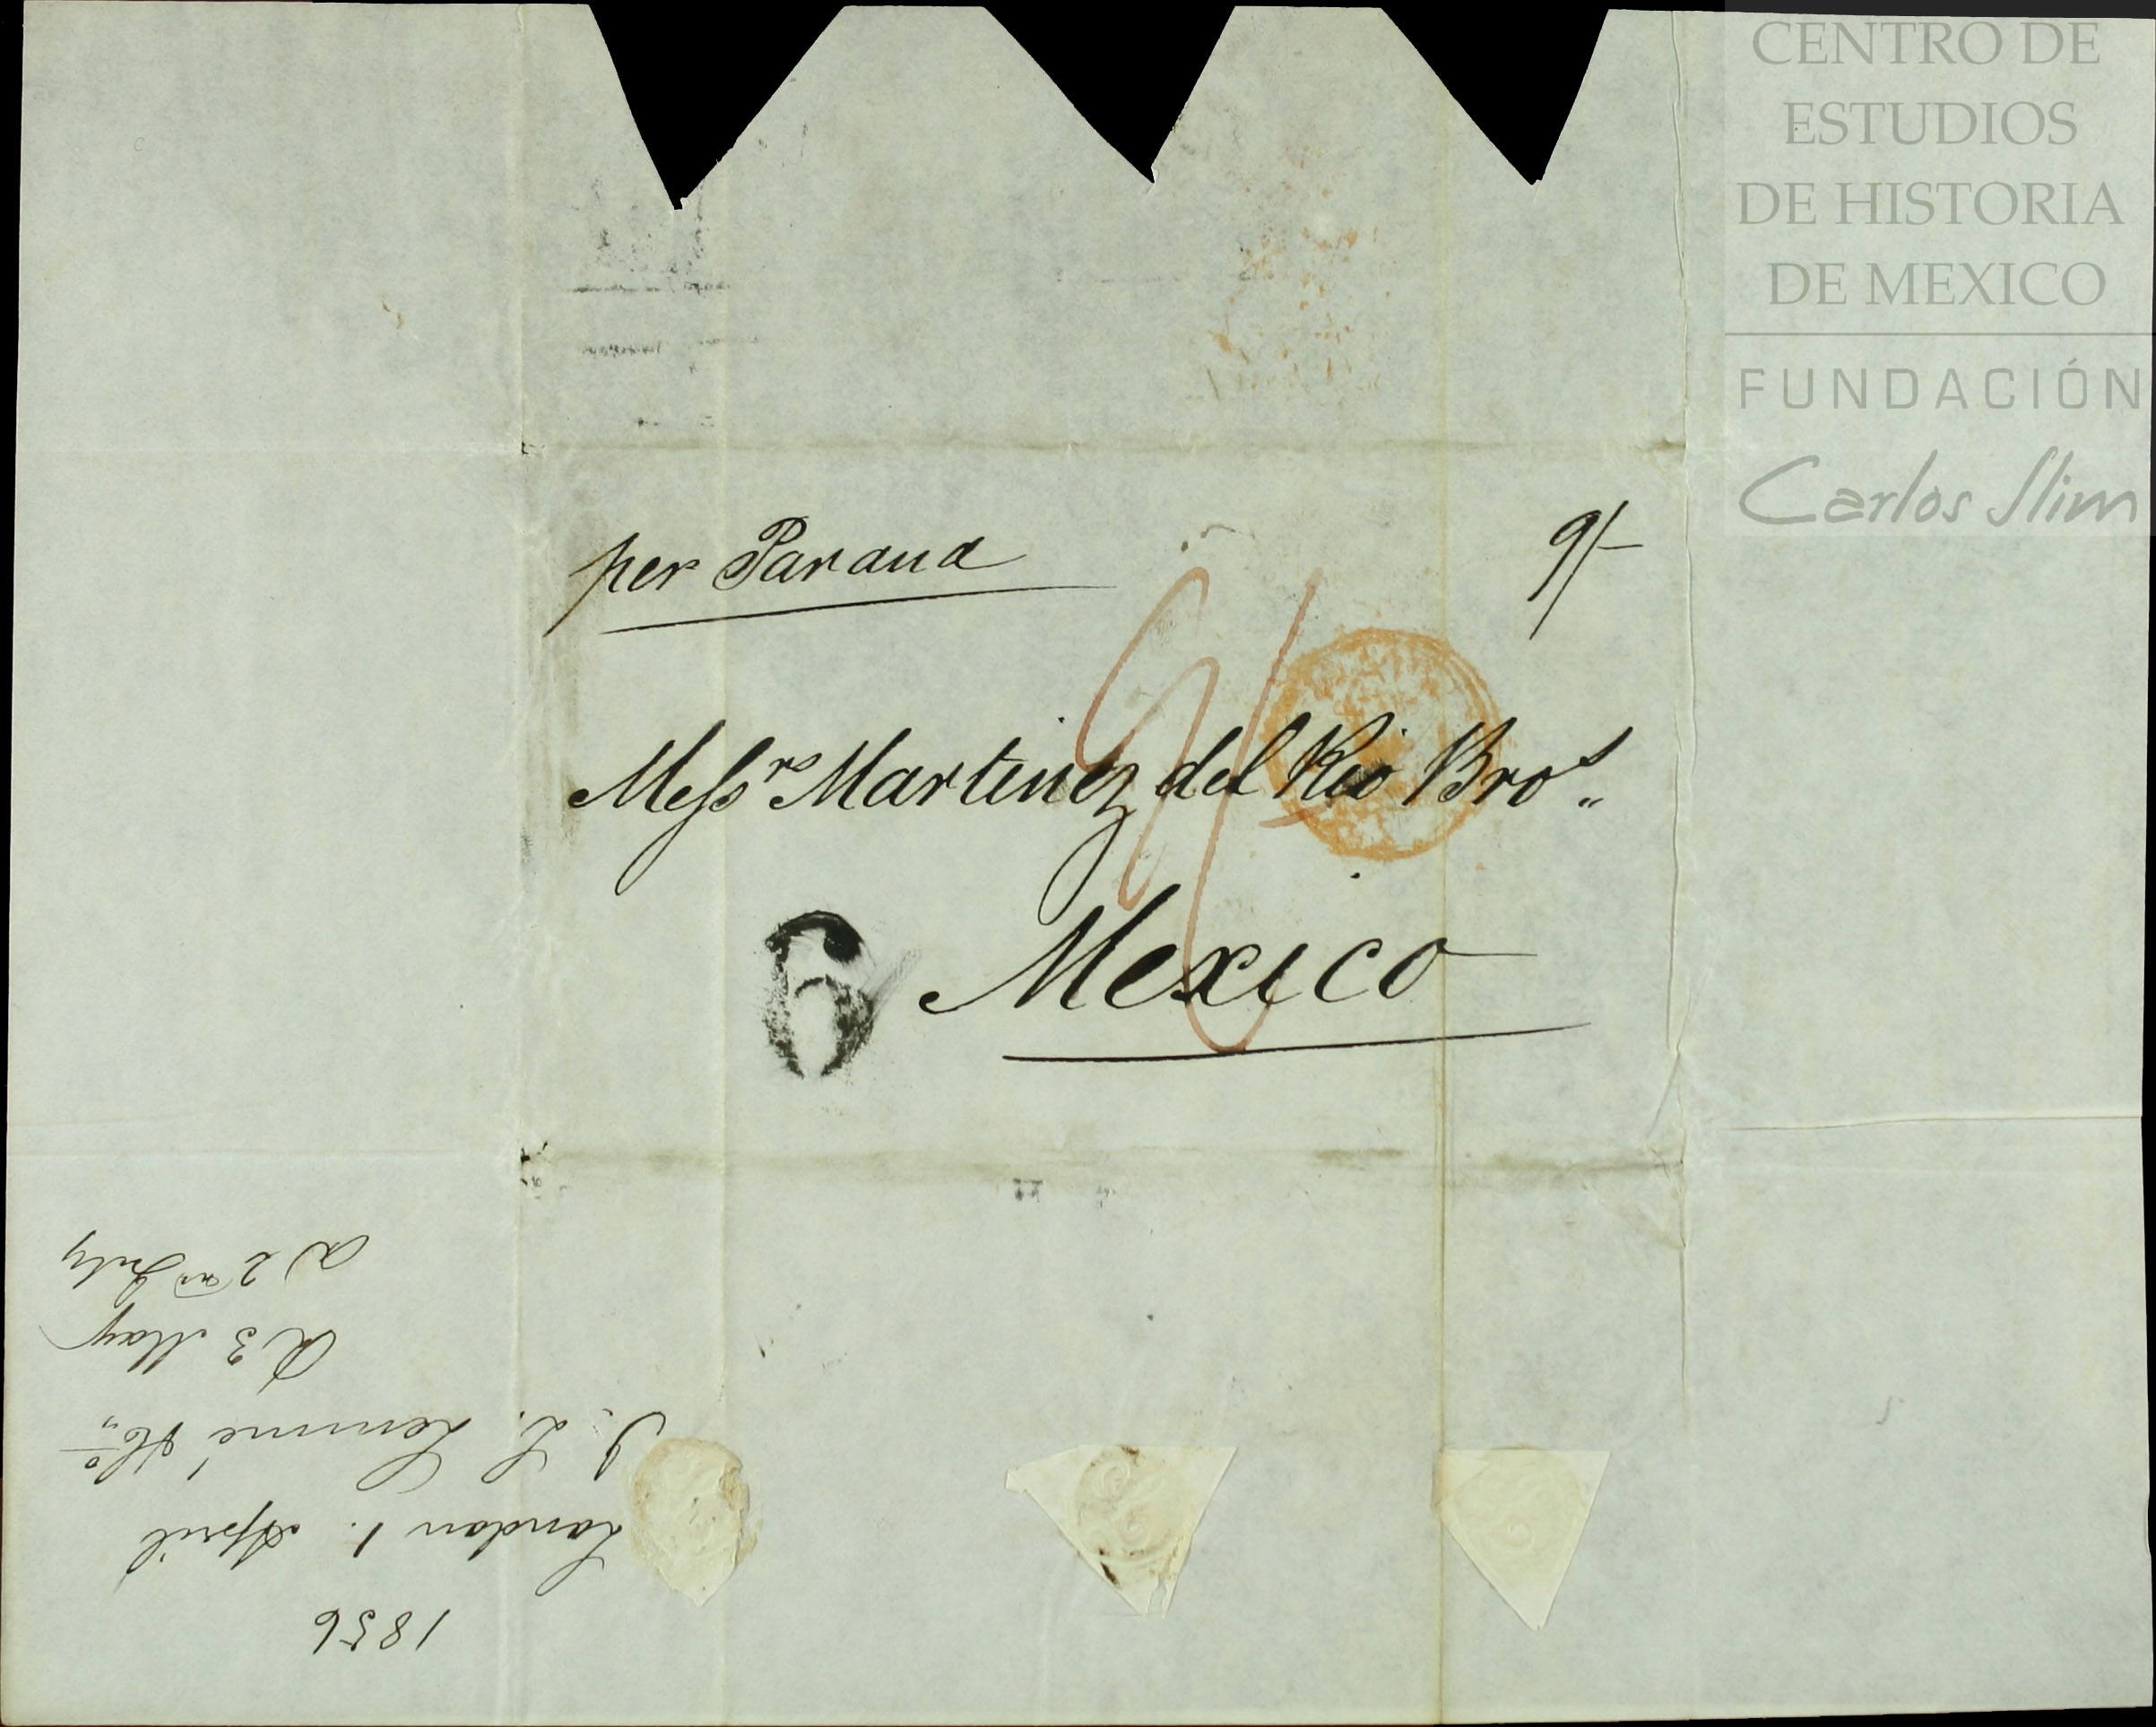 per Parana
9/-
Messrs Martinez del Rio Bros
Mexico
6
1856
London 1. April
J. L. Lemmé & Co
R 3 May
a 2nd July
CENTRO DE
ESTUDIOS
DE HISTORIA
DE MEXICO
FUNDACIÓN
Carlos Slim